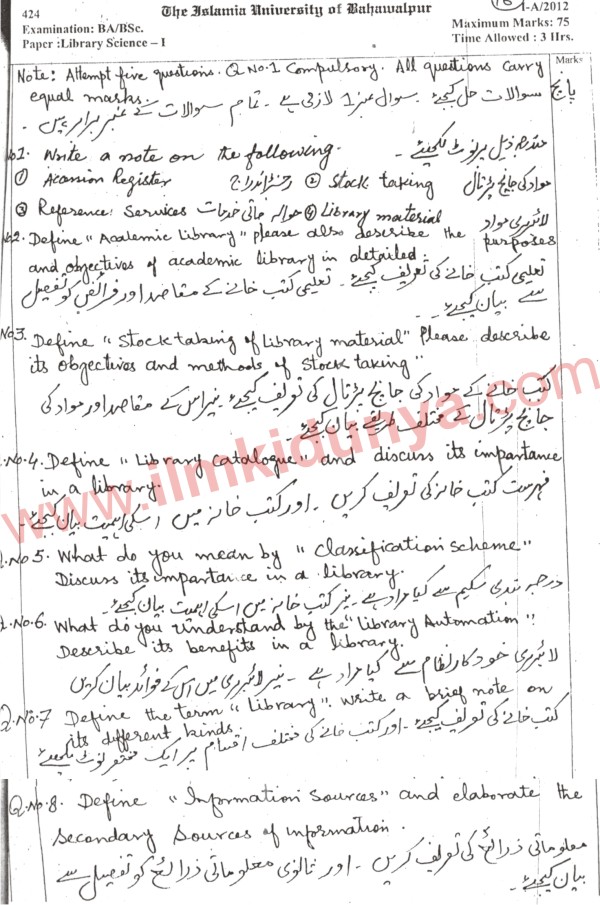 424
The Islamia University of Bahawalpur
I-A/2012
Examination: BA/BSc.
Maximum Marks: 75
Paper :Library Science – I
Time Allowed : 3 Hrs.
Marks
Note: Attempt five questions. Q No.1 Compulsory. All questions carry
equal marks. پانچ سوالات حل کیجئے۔ سوال نمبر 1 لازمی ہے ۔ تمام سوالات کے نمبر برابر ہیں ۔
No1. Write a note on the following. مندرجہ ذیل پر نوٹ لکھیئے ۔
① Acession Register رجسٹر اندراج ② Stock taking مواد کی جانچ پڑتال
③ Reference Services حوالہ جاتی خدمات ④ Library material لائبریری مواد
No2. Define "Acalemic Library" please also describe the purposes
and objectives of academic library in detailed.
تعلیمی کتب خانے کی تعریف کیجئے ۔ تعلیمی کتب خانے کے مقاصد اور فرائض کو تفصیل
سے بیان کیجئے ۔
No3. Define "Stock taking of Library material" Please describe
its obgectives and methods of Stock taking"
کتب خانے کے مواد کی جانچ پڑتال کی تعریف کیجئے نیز اس کے مقاصد اور مواد کی
جانچ پڑتال کے مختلف طریقے بیان کیجئے ۔
Q.No.4. Define "Library Catalogue" and discuss its impartance
in a library.
فہرست کتب خانہ کی تعریف کریں ۔ اور کتب خانہ میں اسکی اہمیت بیان کیجئے ۔
Q.No5. What do you mean by "Classification Scheme"
Discuss its impartance in a library.
درجہ بندی سکیم سے کیا مراد ہے ۔ نیز کتب خانہ میں اسکی اہمیت بیان کیجئے ۔
Q.No.6. What do you Understand by the "Library Automation"?
Describe its benefits in a library.
لائبریری خود کار نظام سے کیا مراد ہے ۔ نیز لائبریری میں اس کے فوائد بیان کریں
Q.No.7 Define the term "Library". Write a brief note on
its different kinds.
کتب خانے کی تعریف کیجئے ۔ اور کتب خانے کی مختلف اقسام پر ایک مختصر نوٹ لکھیئے
Q.No.8. Define "Information Sources" and elaborate the
secondary sources of information.
معلوماتی ذرائع کی تعریف کریں ۔ اور ثانوی معلوماتی ذرائع کو تفصیل سے
بیان کیجئے ۔
www.ilmkidunya.com